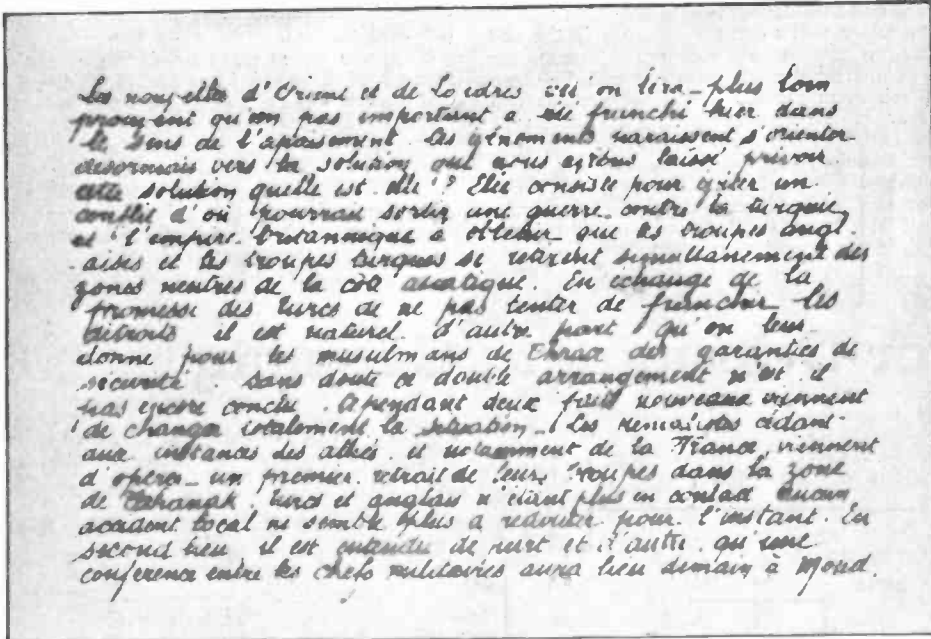 Les nouvelles d'Orient et de Londres on lira plus loin
prouvent qu'un pas important a été franchi hier dans
le sens de l'apaisement. Les paraissent s'orienter
desormais vers la solution que nous avions laissé prévoir
cette solution quelle est elle ? Elle consiste pour eviter un
conflit d'où pourrait sortir une guerre contre la turquie
et l'empire britannique a obtenir que les troupes angl.
aises et les troupes turques se retirent simultanement des
zones neutres de la côte asiatique. En échange de la
promesse des turcs de ne pas tenter de franchir les
détroits il est naturel d'autre part qu'on leur
donne pour les musulmans de Thrace des garanties de
sécurité. Sans doute ce double arrangement n'est il
pas encore conclu. Cependant deux faits nouveaux viennent
de changer totalement la situation. Les cédant
aux instances des alliés et notamment de la France, viennent
d'opérer un premier retrait de leurs troupes dans la zone
de turcs et anglais n'étant plus en contact aucun
accident local ne semble plus a redouter pour l'instant. En
second lieu il est entendu de part et d'autre qu'une
conference entre les chefs militaires aura lieu demain à Moud.